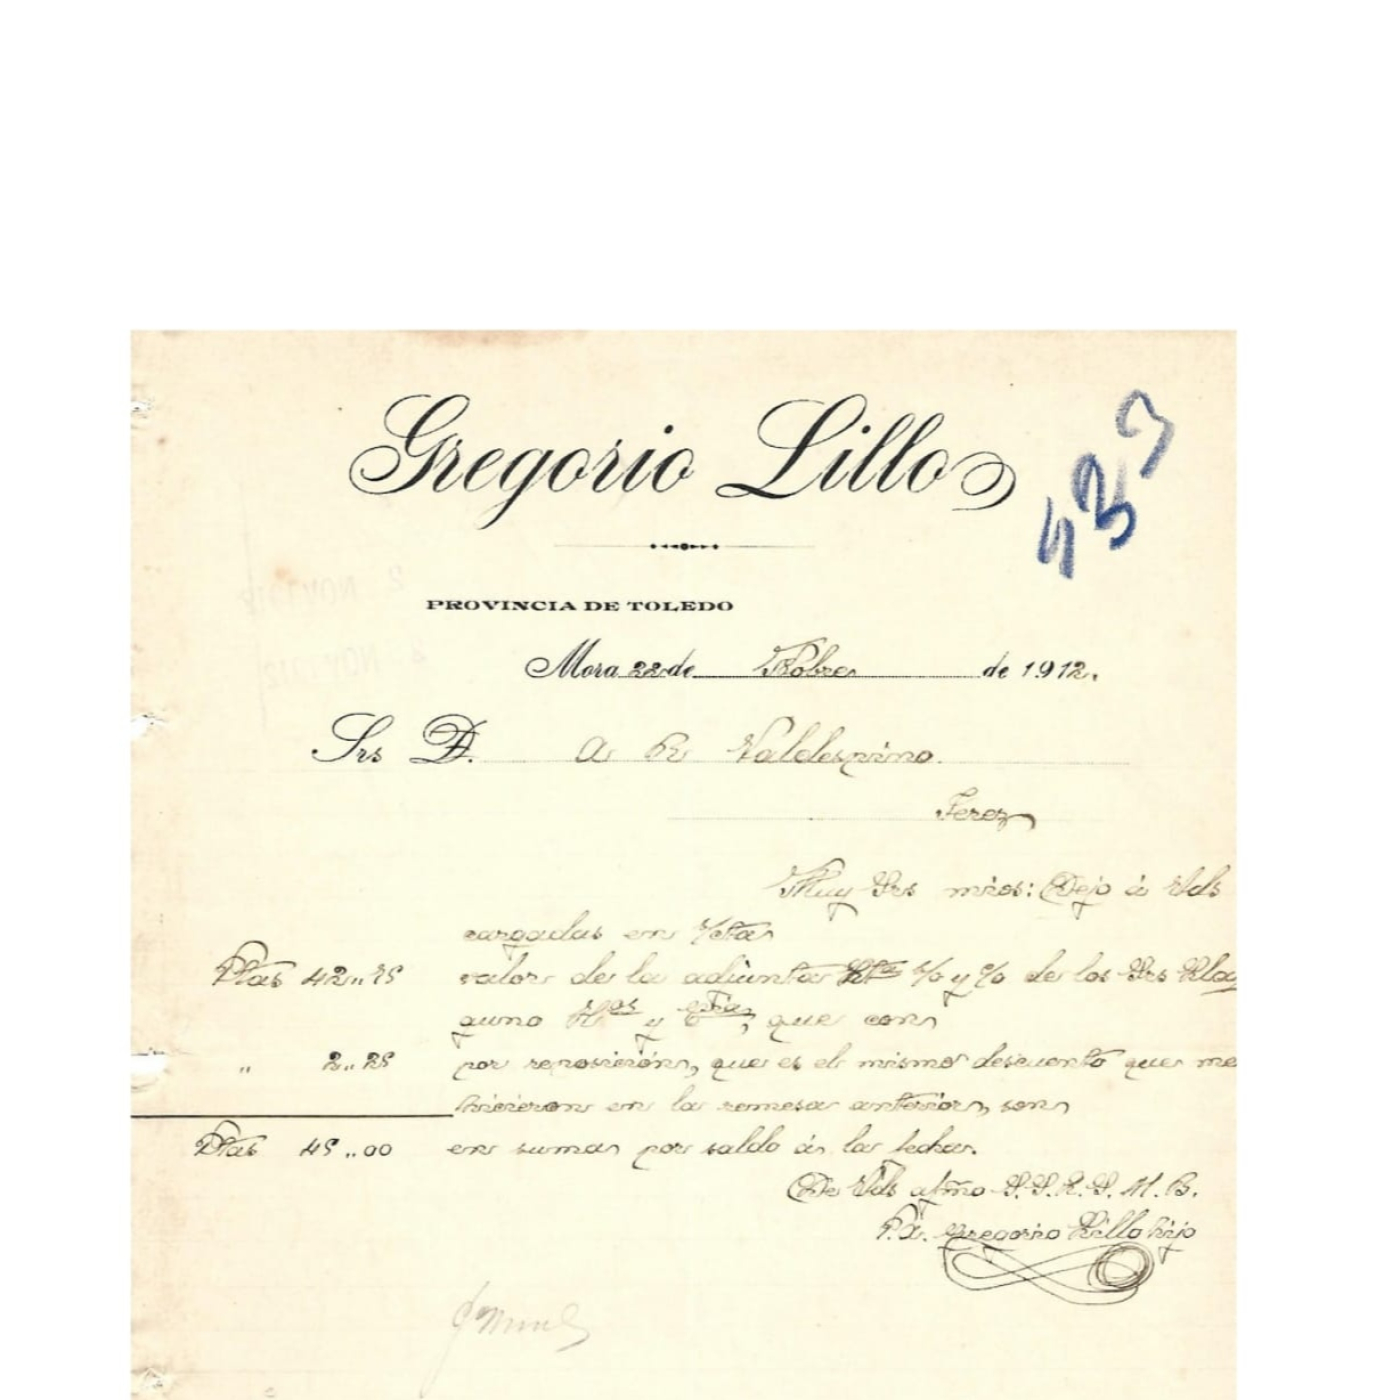 Gregorio Lillo
437
PROVINCIA DE TOLEDO
Mora 22 de Nobre de 1912.
Srs D. A R Valdespino.
Jerez
Muy Srs mios: Dejo á Vds
cargadas en %cta
Ptas 42,,75 valor de la adjunta %o y %o de los Srs
y Cía, que con
,, 2,,25 por reposición, que es el mismo descuento que me
hicieron en la remesa anterior, son
Ptas 45,,00 en suma por saldo á la fecha.
De Vds afmo S.S.Q.S.M.B.
P.A. Gregorio Lillo hijo